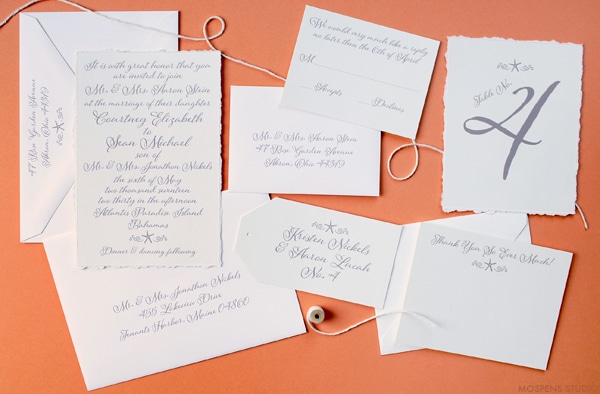 47 Rose Garden Avenue
Akron, Ohio 44319
It is with great honor that you
are invited to join
Mr. & Mrs. Aaron Stein
at the marriage of their daughter
Courtney Elizabeth
to
Sean Michael
son of
Mr. & Mrs. Jonathan Nickels
the sixth of May
two thousand seventeen
two thirty in the afternoon
Atlantis Paradise Island
Bahamas
Dinner & dancing following
We would very much like a reply
no later than the 6th of April
M
Accepts
Declines
Mr. & Mrs. Aaron Stein
47 Rose Garden Avenue
Akron, Ohio 44319
Table No.
4
Kristen Nickels
& Aaron
No. 4
Thank You So Ever Much!
Mr. & Mrs. Jonathan Nickels
455 Lakeview Drive
Tenants Harbor, Maine 04860
MOSPENS STUDIO